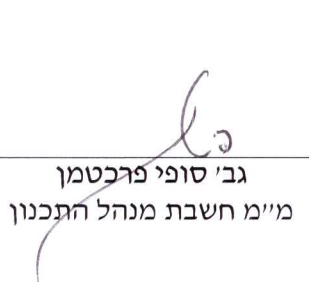 גב' סופי פרכטמן
מ״מ חשבת מנהל התכנון